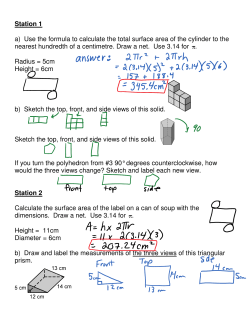 Station 1
a) Use the formula to calculate the total surface area of the cylinder to the
nearest hundredth of a centimetre. Draw a net. Use 3.14 for π.
Radius = 5cm
Height = 6cm
answer: 2πr² + 2πrh
= 2(3.14)(5)² + 2(3.14)(5)(6)
= 157 + 188.4
= 345.4cm²
b) Sketch the top, front, and side views of this solid.
Sketch the top, front, and side views of this solid.
90
If you turn the polyhedron from #3 90° degrees counterclockwise, how
would the three views change? Sketch and label each new view.
front top side
Station 2
Calculate the surface area of the label on a can of soup with the
dimensions. Draw a net. Use 3.14 for π.
Height = 11cm
Diameter = 6cm
A = h x 2πr
= 11 x 2(3.14)(3)
= 207.24cm²
b) Draw and label the measurements of the three views of this triangular
prism.
13 cm
5 cm
14 cm
12 cm
Front
5cm
12cm
Top
14cm
13 cm
Side
14 cm
5cm